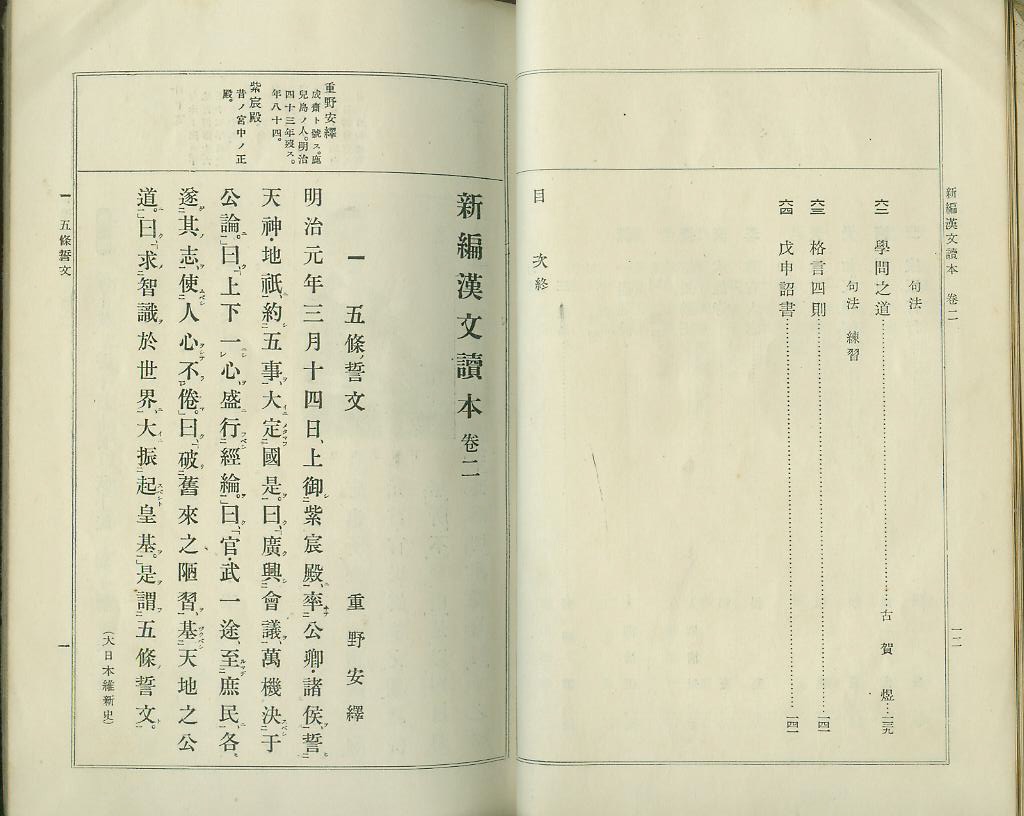 新編漢文讀本 卷二
一二
句法
六二 學問之道……古賀煜…一三九
句法 練習
六三 格言四則……一四一
六四 戊申詔書……一四一
目次終
重野安繹
成齋ト號ス。鹿
兒島ノ人。明治
四十三年歿ス。
年八十四。
紫宸殿
昔ノ宮中ノ正
殿。
新編漢文讀本 卷二
一 五條誓文 重野安繹
明治元年三月十四日、上御紫宸殿、率公卿・諸侯、誓
天神・地祇、約五事、大定國是。曰、「廣興會議、萬機決于
公論。」曰、「上下一心、盛行經綸。」曰、「官・武一途、至庶民、各
遂其志、使人心不倦。」曰、「破舊來之陋習、基天地之公
道。」曰、「求智識於世界、大振起皇基。」是謂五條誓文。
(大日本維新史)
一 五條誓文
一